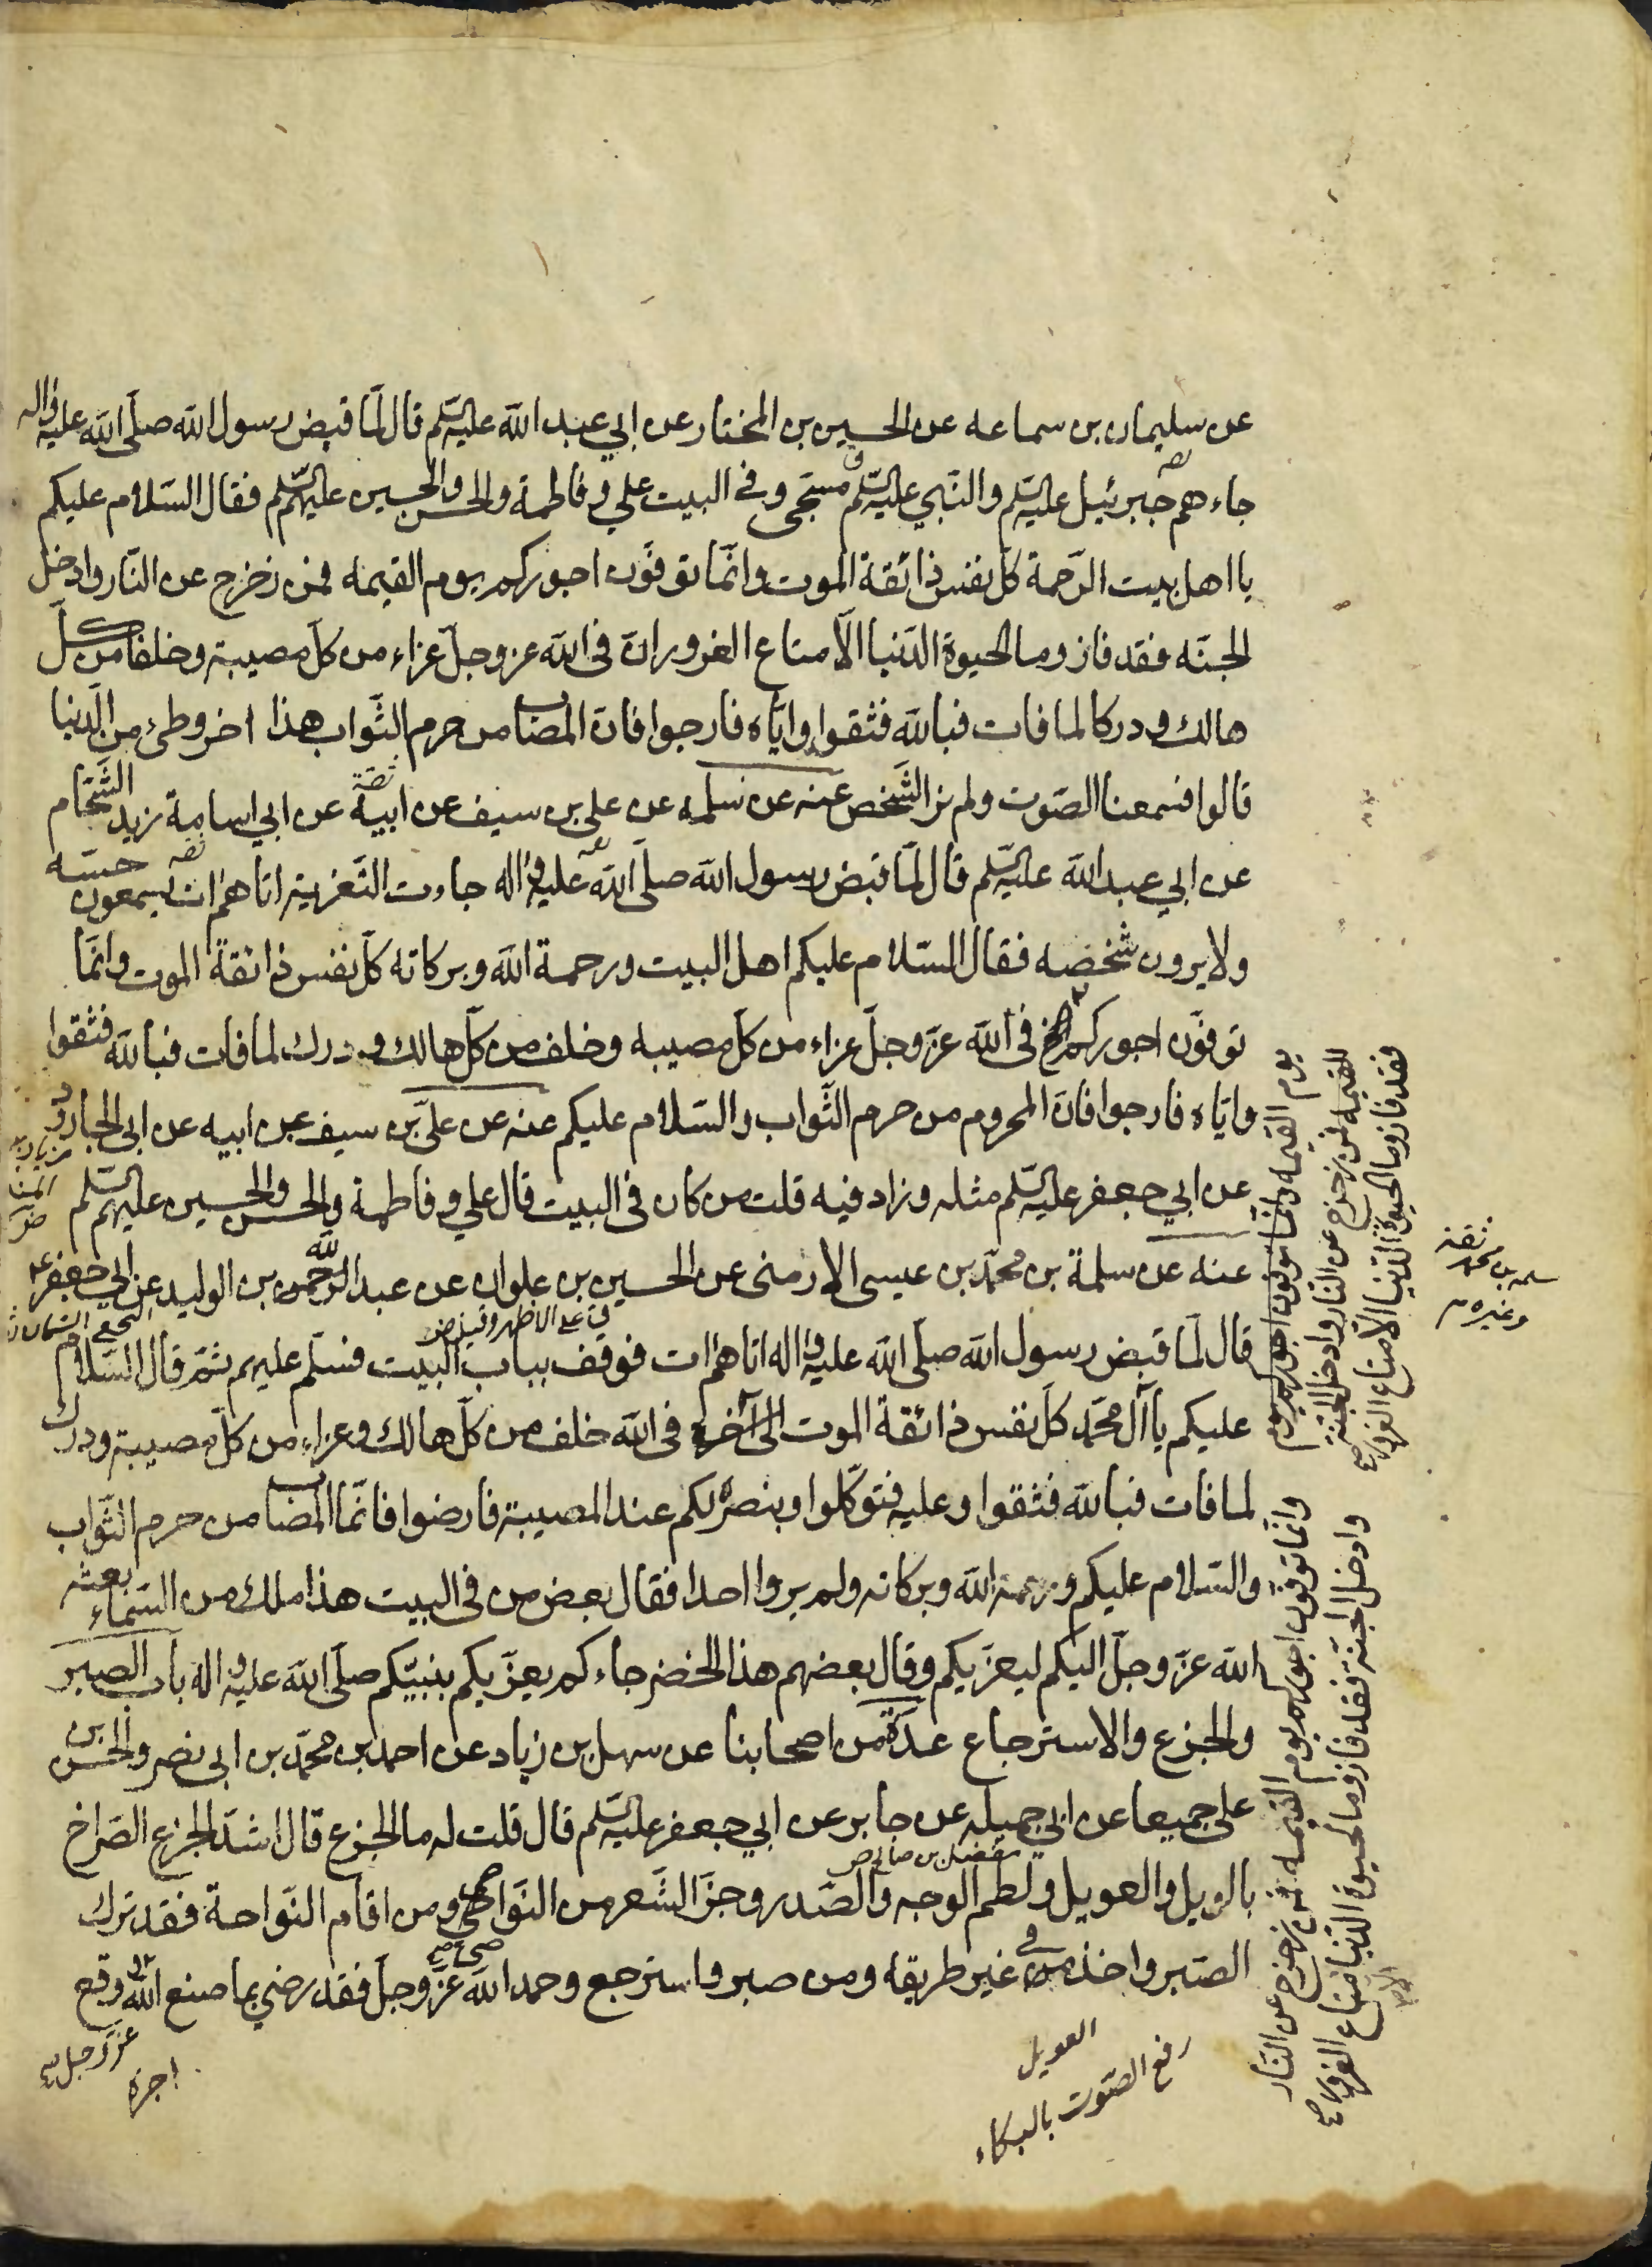 عن سليمان بن سماعه عن الحسين بن المختار عن ابي عبد الله عليه السّلم قال لمّا قبض رسول الله صلّى الله عليه واله
جاءهم جبرئيل عليه السّلم والنّبي عليه السّلم مسجّى وفى البيت علي وفاطمة والحسن والحسين عليهم السّلم فقال السّلام عليكم
يا اهل بيت الرّحمة كلّ نفس ذائقة الموت وانّما توفّون اجوركم يوم القيمه فمن زحزح عن النّار وادخل
الجنّه فقد فاز وما الحيوة الدّنيا الّا متاع الغرور انّ فى الله عز وجلّ عزاء من كلّ مصيبة وخلفا من كلّ
هالك ودركا لما فات فبالله فثقوا وايّاه فارجوا فانّ المصاب من حرم الثّواب هذا اخر وطئ من الدّنيا
قالوا فسمعنا الصّوت ولم نر الشّخص عنه عن سلمه عن علي بن سيف عن ابيه عن ابي اسامة زيد الشّحّام
ثقة
عن ابي عبد الله عليه السّلم قال لمّا قبض رسول الله صلّى الله عليه واله جاءت التّعزية اتاهم ات يسمعون حسّه
ولا يرون شخصه فقال السّلام عليكم اهل البيت ورحمة الله وبركاته كلّ نفس ذائقة الموت وانّما
توفّون اجوركم الخ فى الله عزّ وجلّ عزاء من كلّ مصيبه وخلف من كلّ هالك ودرك لما فات فبالله فثقوا
وايّاه فارجوا فانّ المحروم من حرم الثّواب والسّلام عليكم عنه عن عليّ بن سيف عن ابيه عن ابى الجارود
عن ابي جعفر عليه السّلم مثله وزاد فيه قلت من كان فى البيت قال علي وفاطمة والحسن والحسين عليهم السّلم
عنه عن سلمة بن محمّد بن عيسى الارمنى عن الحسين بن علوان عن عبد الله عبد الرحمن بن الوليد عن ابي جعفر
قال لمّا قبض رسول الله صلّى الله عليه واله اتاهم ات فوقف بباب البيت فسلّم عليهم ثمّ قال السّلام
عليكم يا آل محمّد كلّ نفس ذائقة الموت الى آخره فى الله خلف من كلّ هالك وعزاء من كلّ مصيبة ودرك
لما فات فبالله فثقوا وعليه فتوكّلوا وبنصره لكم عند المصيبة فارضوا فانّما المصاب من حرم الثّواب
والسّلام عليكم ورحمة الله وبركاته ولم يروا احدا فقال بعض من فى البيت هذا ملك من السّماء بعثه
الله عزّ وجلّ اليكم ليعزّيكم وقال بعضهم هذا الخضر جاءكم يعزّيكم بنبيّكم صلّى الله عليه واله باب الصبر
والجزع والاسترجاع عدّة من اصحابنا عن سهل بن زياد عن احمد بن محمّد بن ابى نصر والحسن بن
علي جميعا عن ابي جميله عن جابر عن ابي جعفر عليه السّلم قال قلت له ما الجزع قال اشدّ الجزع الصّراخ
مفضل بن صالح ض
بالويل والعويل ولطم الوجه والصّدر وجزّ الشّعر من النّواصي ومن اقام النّواحة فقد ترك
الصّبر واخذ فى غير طريقه ومن صبر واسترجع وحمد الله عزّ وجلّ فقد رضي بما صنع الله وقع
عزّ وجلّ
اجره
العويل
رفع الصّوت بالبكاء
يوم القيمه وانّما توفّون اجوركم يوم
القيمه فمن زحزح عن النّار وادخل الجنّة
فقد فاز وما الحيوة الدّنيا الّا متاع الغرور
ثقة
سلمه بن محمد
وغيره
وانّما توفّون اجوركم يوم القيمه فمن زحزح عن النّار
وادخل الجنّة فقد فاز وما الحيوة الدّنيا الّا متاع الغرور